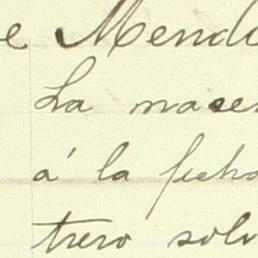 e Mendo
La nacen
á la fecha
trero solv